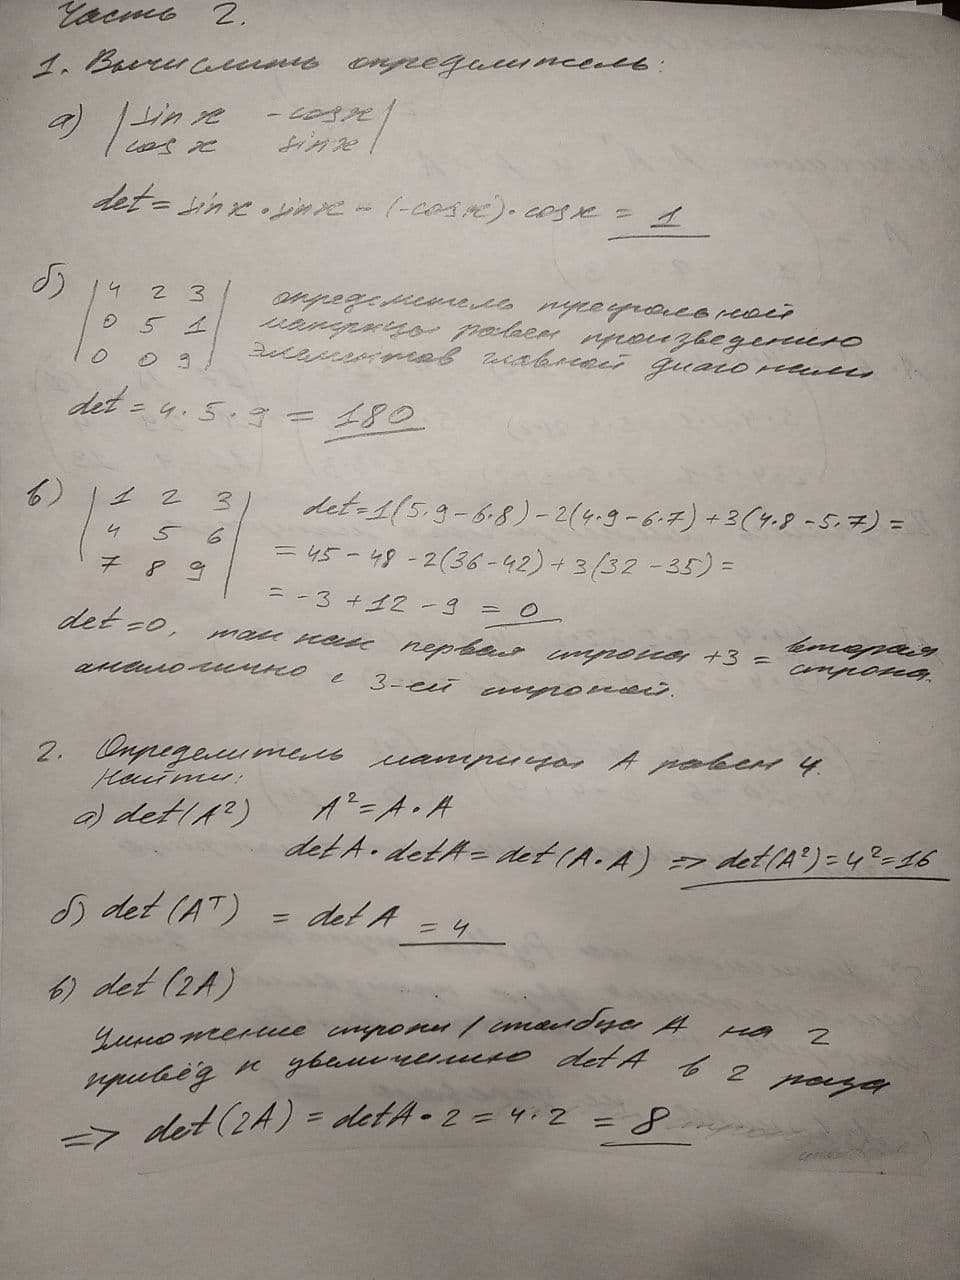 Часть 2.
1. Вычислить определитель:
а) | sin x  -cos x |
| cos x  sin x |
det = sin x · sin x - (-cos x) · cos x = 1
б) | 4 2 3 | определитель треугольной
| 0 5 1 | матрицы равен произведению
| 0 0 9 | элементов главной диагонали
det = 4 · 5 · 9 = 180
в) | 1 2 3 | det = 1(5·9 - 6·8) - 2(4·9 - 6·7) + 3(4·8 - 5·7) =
| 4 5 6 | = 45 - 48 - 2(36 - 42) + 3(32 - 35) =
| 7 8 9 | = -3 + 12 - 9 = 0
det = 0, так как первая строка + 3 = вторая строка.
аналогично с 3-ей строкой.
2. Определитель матрицы A равен 4.
Найти:
а) det(A²) A² = A · A
det A · det A = det(A · A) => det(A²) = 4² = 16
б) det(Aᵀ) = det A = 4
в) det(2A)
Умножение строки / столбца A на 2
привёд к увеличению det A в 2 раза
=> det(2A) = det A · 2 = 4 · 2 = 8